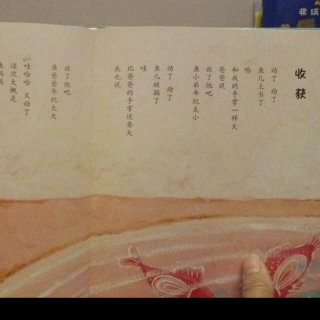 收获
动了 动了
鱼儿上当了
哈
和我的手掌一样大
爸爸说
放了他吧
鱼小弟年纪太小
动了 动了
哇
鱼儿被骗了
比爸爸的手掌还要大
我也说
放了他吧
鱼爸爸年纪太大
哇哈哈 又动了
这次大概是
鱼妈妈